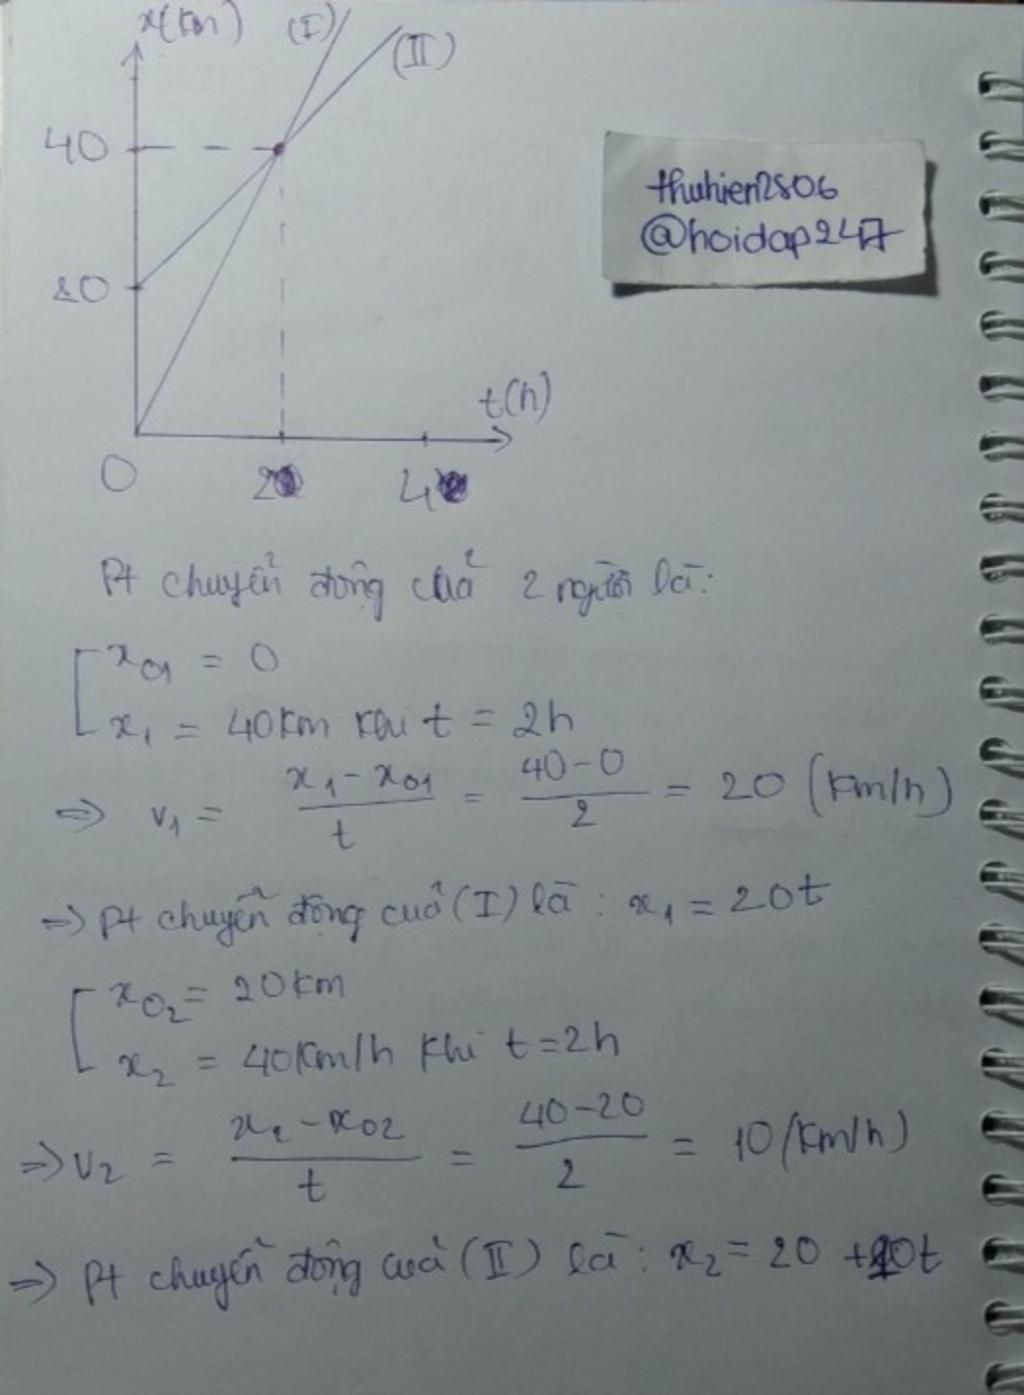 x(km) (I) (II)
40
20
t(h)
0 2 4
thuhien2806
@hoidap247
Pt chuyển động của 2 người là:
x₀₁ = 0
x₁ = 40km khi t = 2h
⇒ v₁ = (x₁ - x₀₁)/t = (40-0)/2 = 20 (km/h)
⇒ Pt chuyển động của (I) là: x₁ = 20t
x₀₂ = 20km
x₂ = 40km/h khi t = 2h
⇒ v₂ = (x₂ - x₀₂)/t = (40-20)/2 = 10 (km/h)
⇒ Pt chuyển động của (II) là: x₂ = 20 + 10t